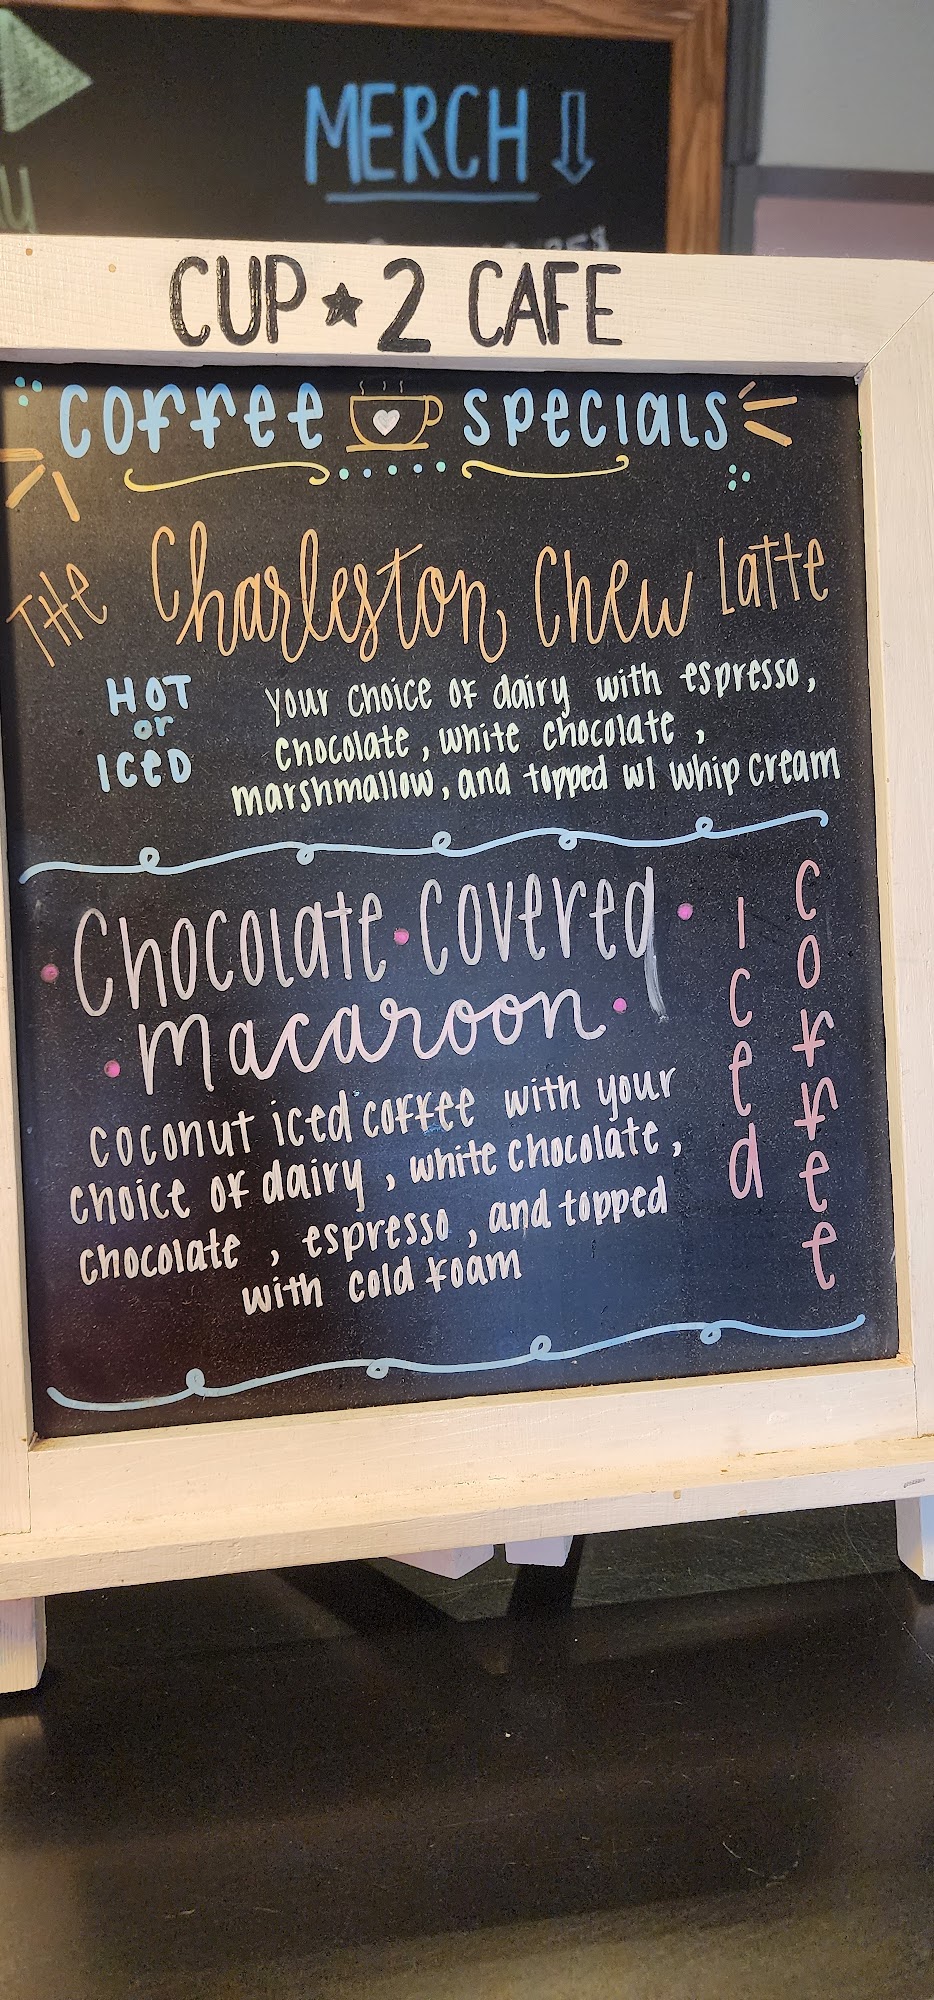 MERCH
CUP ★ 2 CAFE
coffee specials
THE Charleston Chew Latte
HOT
or
ICED
your choice of dairy with espresso,
chocolate, white chocolate,
marshmallow, and topped w/ whip cream
Chocolate Covered
Macaroon
Iced
coffee
coconut iced coffee with your
choice of dairy, white chocolate,
chocolate, espresso, and topped
with cold foam